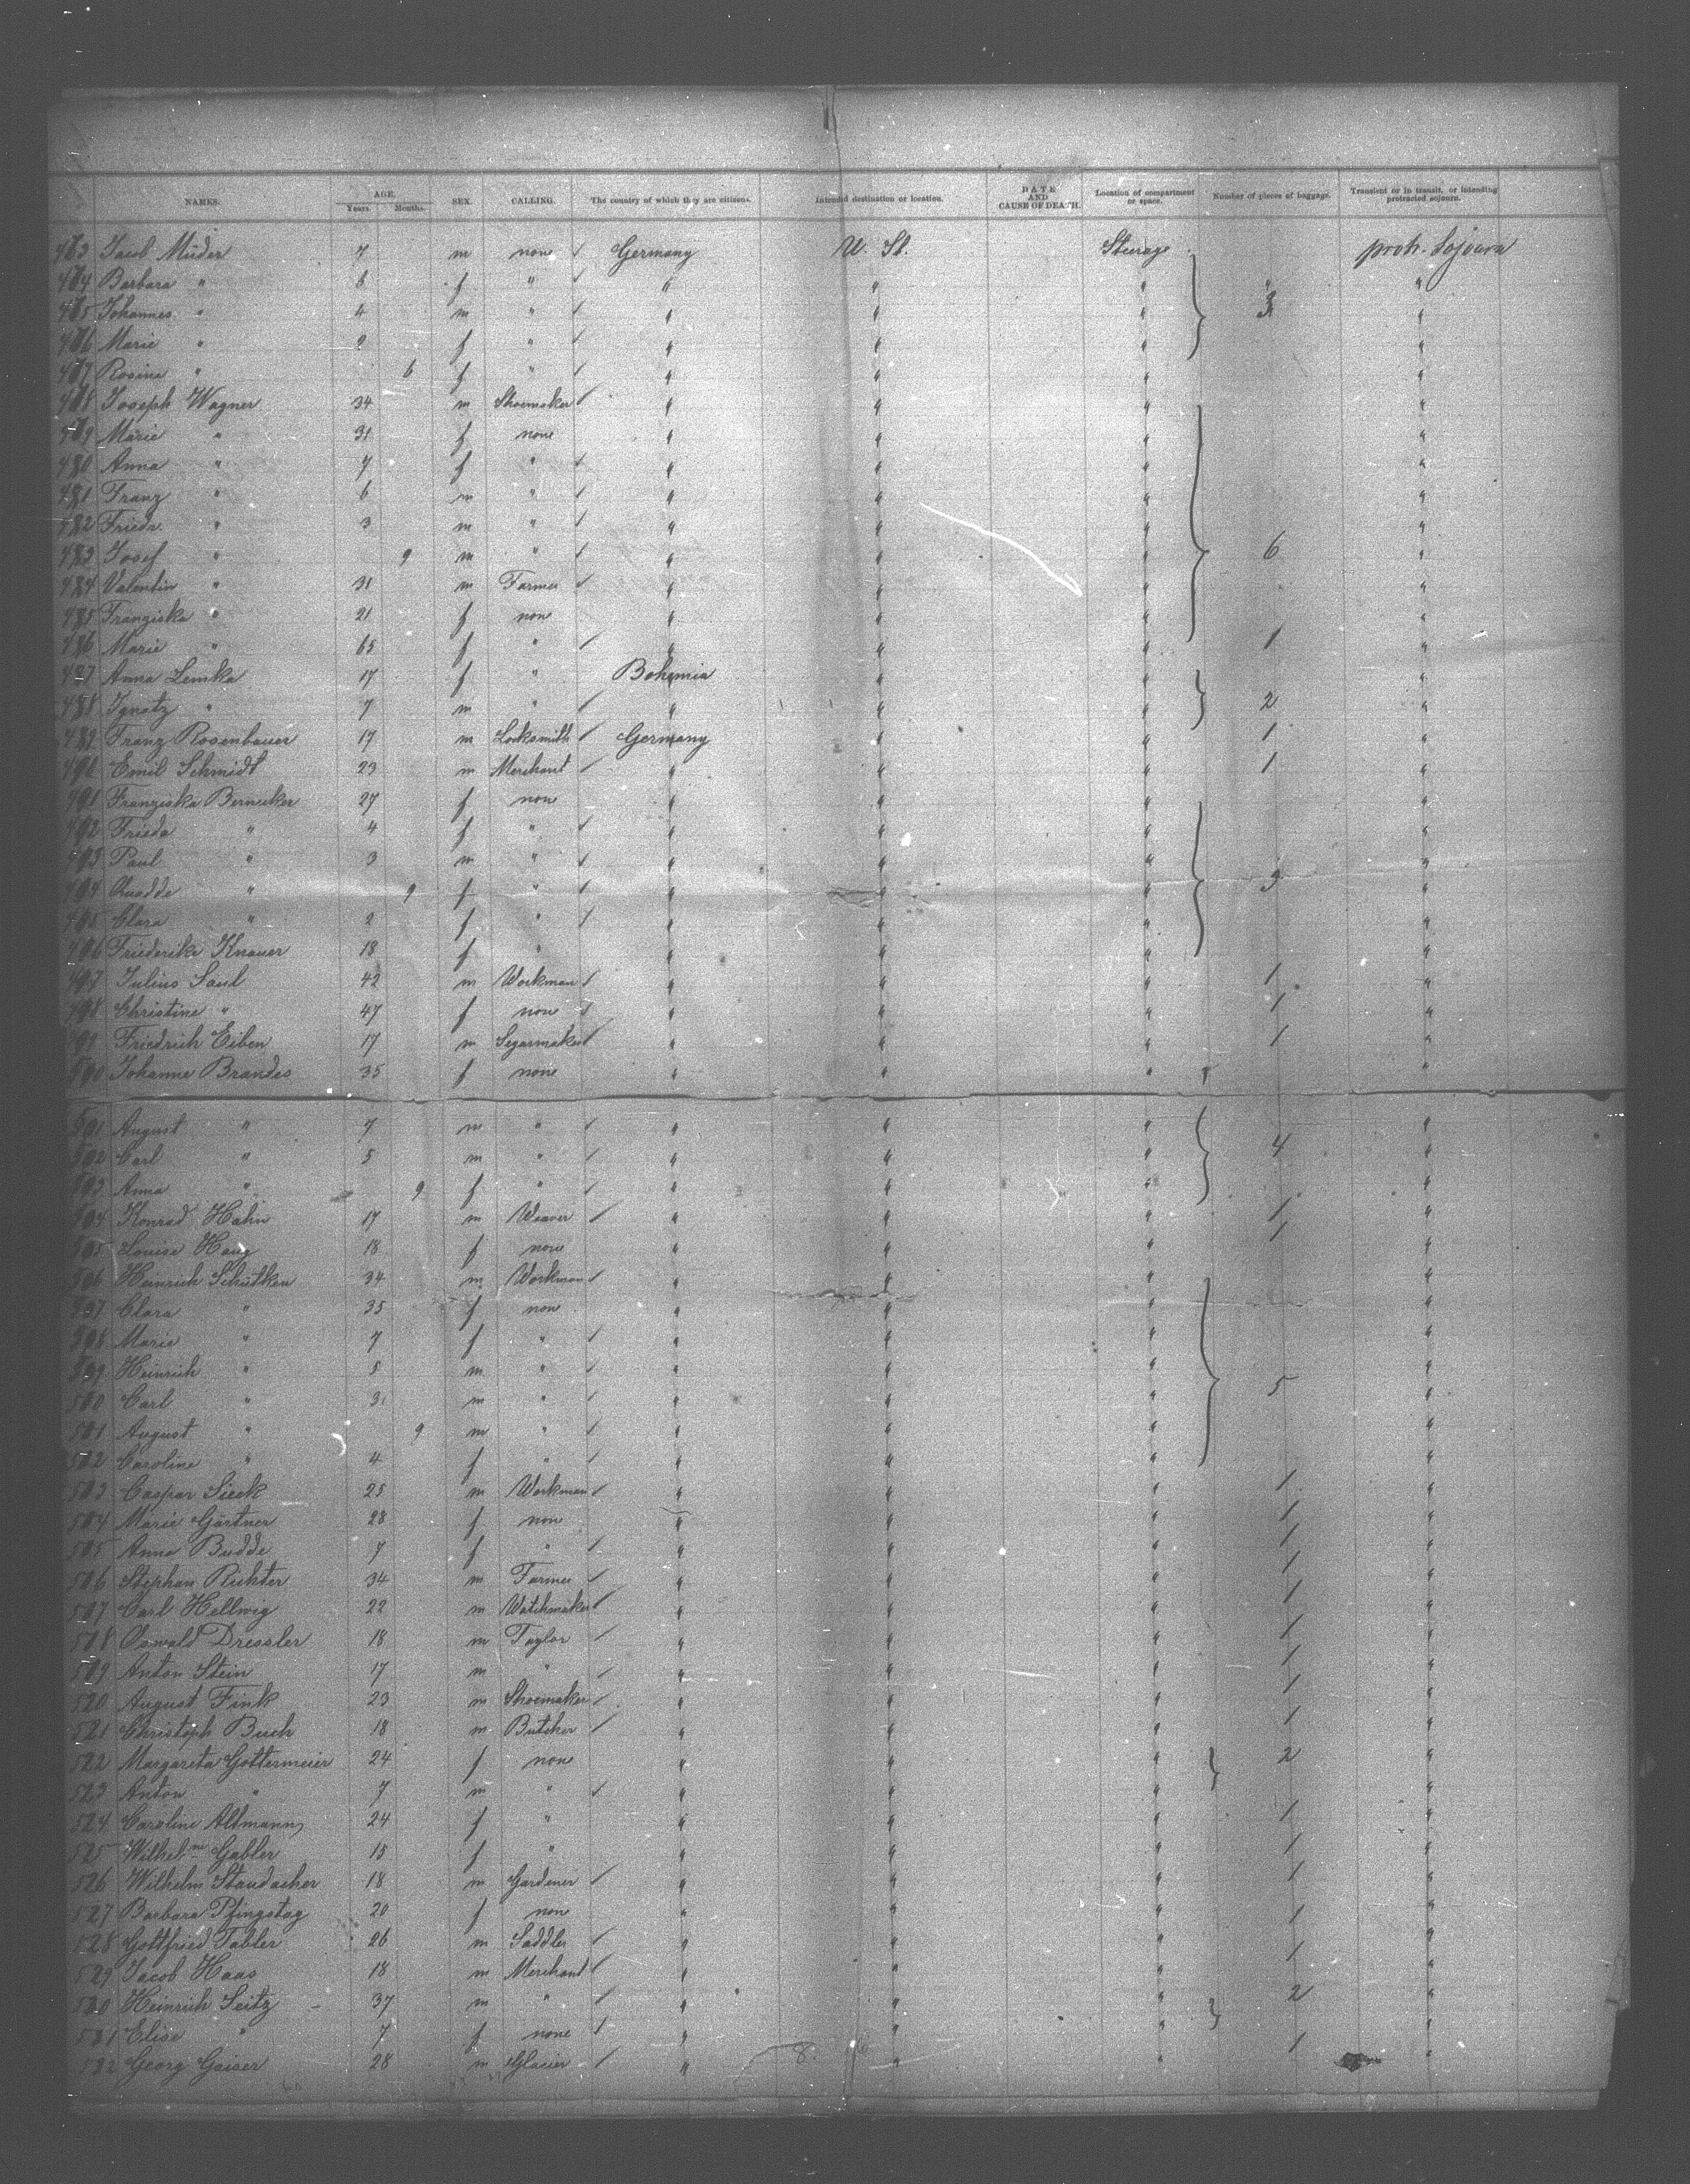 NAMES. AGE. Years. Months. SEX. CALLING. The country of which they are citizens. Intended destination or location. DATE AND CAUSE OF DEATH. Location of compartment or space. Number of pieces of baggage. Transient or in transit, or intending protracted sojourn.
Jacob Müder 7 m none Germany U. St. Sterage protr. Sojourn
Barbara " 6 f " " " " "
Johannes " 4 m " " " " 3 "
Marie " 2 f " " " " "
Rosine " 6 f " " " " "
478 Joseph Wagner 34 m Shoemaker " " " "
479 Marie " 31 f none " " " "
480 Anna " 7 f " " " " "
481 Franz " 6 m " " " " "
482 Friedr. " 3 m " " " " "
483 Josef " 9 m " " " " 6 "
484 Valentin " 31 m Farmer " " " "
485 Franziska " 21 f none " " " "
486 Marie " 65 f " " " " 1 "
487 Anna Lemka 17 f " Bohemia " " "
488 Ignatz " 7 m " " " " 2 "
489 Franz Rosenbauer 17 m Locksmith Germany " " 1 "
490 Emil Schmidt 23 m Merchant " " " 1 "
491 Franziska Bernecker 27 f none " " " "
492 Frieda " 4 f " " " " "
493 Paul " 3 m " " " " "
494 " 9 f " " " " 3 "
495 Clara " 2 f " " " " "
496 Friederike Knauer 18 f " " " " "
497 Julius Saul 42 m Workman " " " 1 "
498 Christine " 47 f none " " " 1 "
499 Friedrich Eiben 17 m Segarmaker " " " 1 "
Johanne Brandes 35 f none " " " "
August " 7 m " " " " "
Carl " 5 m " " " " 4 "
Anna " 9 f " " " " "
Konrad Hahn 17 m Weaver " " " 1 "
Louise Haug 18 f none " " " 1 "
Heinrich Schütken 34 m Workman " " " "
Clara " 35 f none " " " "
Marie " 7 f " " " " "
Heinrich " 5 m " " " " "
Carl " 3 m " " " " 5 "
August " 9 m " " " " "
Caroline " 4 f " " " " "
Caspar Sieck 25 m Workman " " " 1 "
Marie Gärtner 28 f none " " " 1 "
Anna Budde 7 f " " " " 1 "
Stephan Richter 34 m Farmer " " " 1 "
Carl Hellwig 22 m Watchmaker " " " 1 "
Oswald Dressler 18 m Taylor " " " 1 "
Anton Stein 17 m " " " " 1 "
520 August Fink 23 m Shoemaker " " " 1 "
521 Christoph Buch 18 m Butcher " " " 1 "
522 Margareta Gottermeier 24 f none " " " 2 "
523 Anton " 7 m " " " " "
524 Caroline Altmann 24 f " " " " 1 "
525 Wilhelm Gabler 15 f " " " " 1 "
526 Wilhelm Staudacher 18 m Gardener " " " 1 "
527 Barbara Pfingstag 20 f none " " " 1 "
528 Gottfried Tabler 26 m Saddler " " " 1 "
529 Jacob Haas 18 m Merchant " " " "
530 Heinrich Seitz 37 m " " " " 2 "
531 Elise " 7 f none " " " "
532 Georg Gaiser 28 m Glacier " " " 1 "